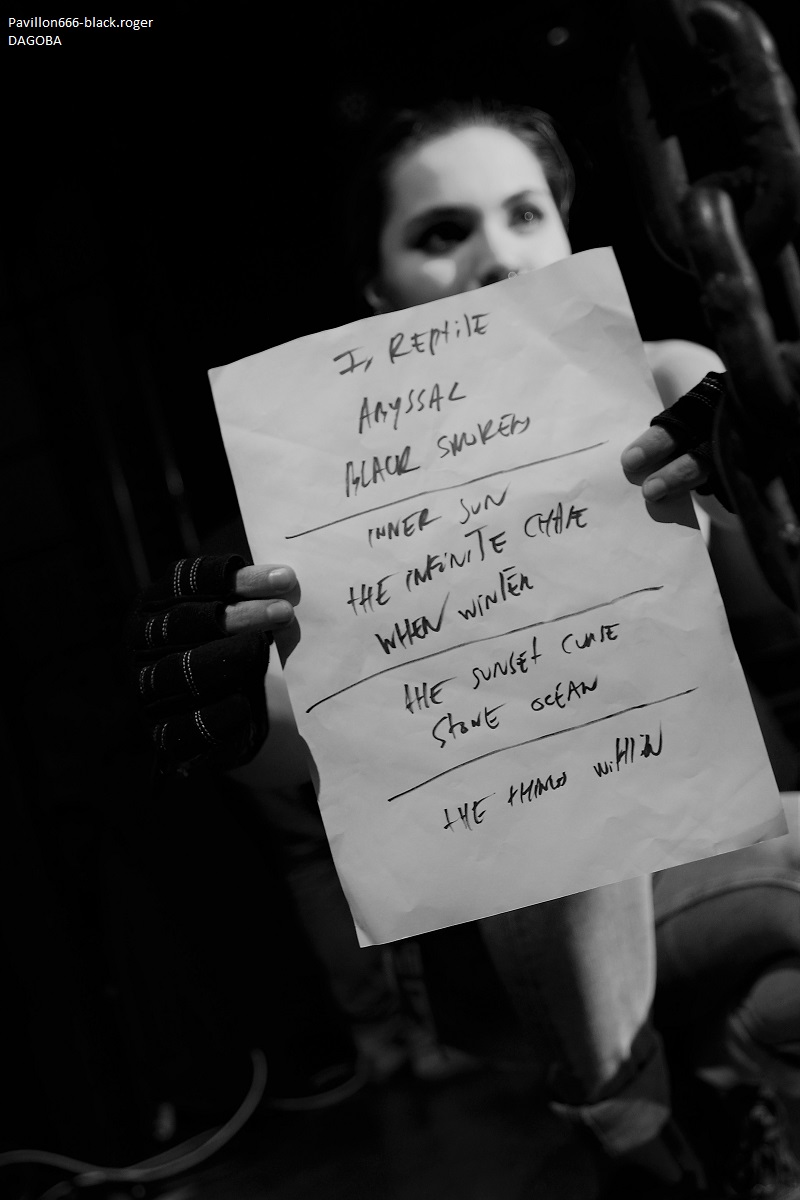 Pavillon666-black.roger
DAGOBA
I, REPTILE
ABYSSAL
BLACK SMOKERS
INNER SUN
THE INFINITE CHASE
WHEN WINTER
THE SUNSET CURSE
STONE OCEAN
THE THINGS WITHIN